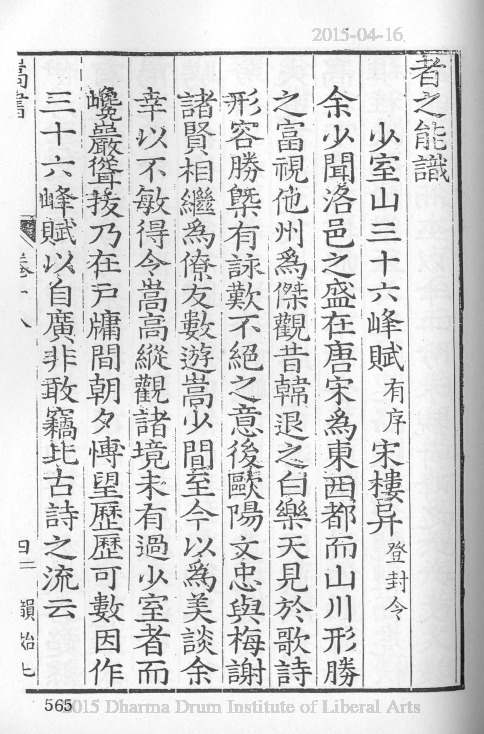 2015-04-16
者之能識
少室山三十六峰賦有序宋樓异登封令
余少聞洛邑之盛在唐宋為東西都而山川形勝
之富視他州為傑觀昔韓退之白樂天見於歌詩
形容勝槩有詠歎不絕之意後歐陽文忠與梅謝
諸賢相繼為僚友數遊嵩少間至今以為美談余
幸以不敏得令嵩高縱觀諸境未有過少室者而
巉巖聳拔乃在戶牖間朝夕慱望歷歷可數因作
三十六峰賦以自廣非敢竊比古詩之流云
嵩書 卷十八 四二 韻始七
565
2015 Dharma Drum Institute of Liberal Arts